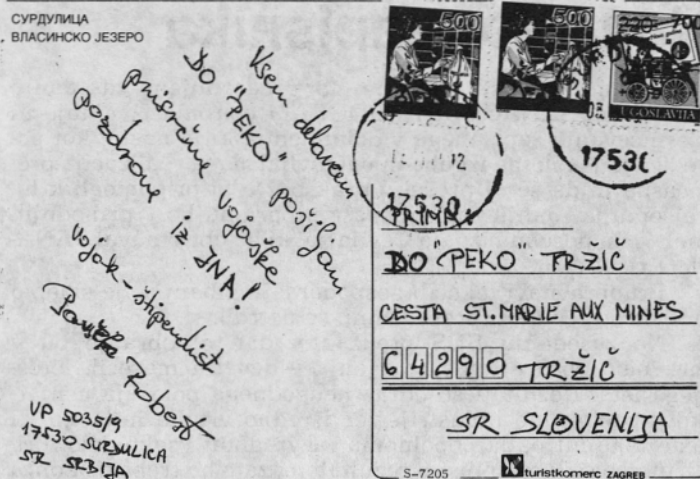 СУРДУЛИЦА
ВЛАСИНСКО ЈЕЗЕРО
Vsem delavcem
DO "PEKO" pošiljam
prisrčne vojaške
pozdrave iz JNA!
vojak-štipendist
Robert
VP 5035/9
17530 SURDULICA
SR SRBIJA
500
500
220
70
JUGOSLAVIJA
12
17530
17530
PRIMA:
DO PEKO TRŽIČ
CESTA ST. MARIE AUX MINES
64290 TRŽIČ
SR SLOVENIJA
S-7205
turistkomerc ZAGREB